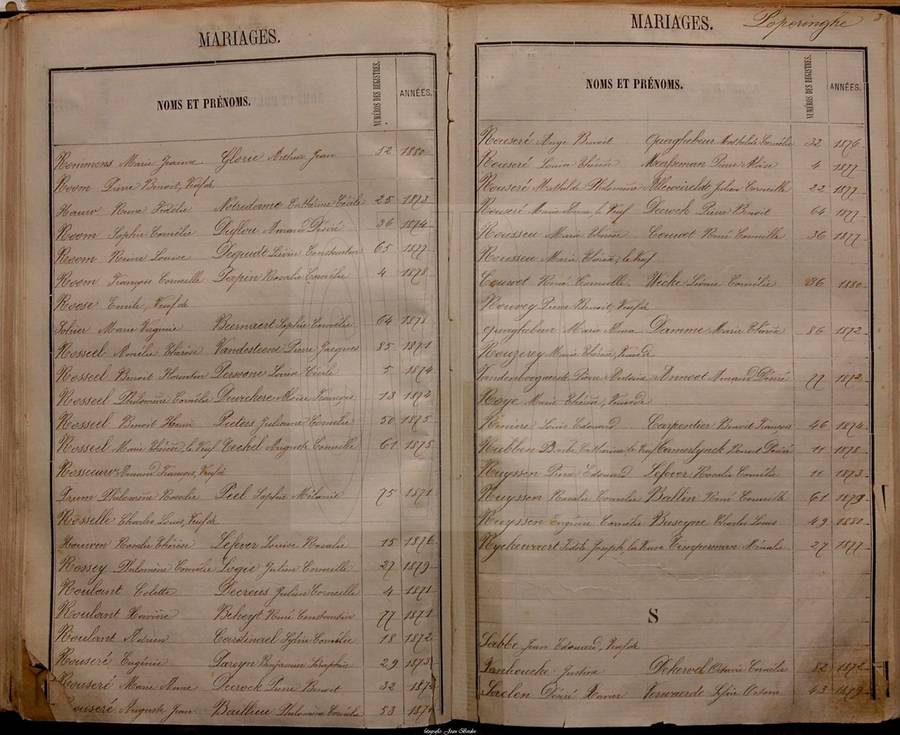 MARIAGES.
NOMS ET PRÉNOMS.
NUMÉROS DES REGISTRES.
ANNÉES.
Rommens Marie Jeanne Glorie Arthur Jean 52 1880
Room Pierre Benoit, Veuf de
Hauw Reine Fidélie Notredame Cathérine Cécile 25 1873
Room Sophie Cornélie Duflou Amand Désiré 36 1874
Room Reine Louise Dequidt Livin Constantin 65 1877
Room François Corneille Depin Rosalie Cornélie 4 1878
Roose Emile, Veuf de
Sohier Marie Virginie Bernaert Sophie Cornélie 64 1878
Rosseel Amélie Thérèse Vandesteene Pierre Jacques 85 1871
Rosseel Benoit Florentin Persoone Louise Cécile 5 1874
Rosseel Philomène Cornélie Deurchere François 13 1874
Rosseel Benoit Henri Peeters Julienne Cornélie 50 1875
Rosseel Marie Thérèse, le Veuf Corneille 61 1875
Amand François, Veuf de
Philomène Rosalie Peel Sophie Mélanie 75 1871
Rosselle Charles Louis, Veuf de
Houwen Rosalie Thérèse Lefever Louise Rosalie 15 1876
Rossey Philomène Cornélie Logie Julien Corneille 27 1879
Roulant Colette Decreus Julien Corneille 4 1871
Roulant Beheyt René Constantin 77 1871
Roulant Adrien Cardinael Sylvie Cornélie 18 1872
Rouseré Eugénie Pareyn Benjamin Séraphin 29 1873
Rouseré Marie Anne Decrock Pierre Benoit 32 187
Rouseré Auguste Jean Bailleue Philomène Cornélie 53 187
MARIAGES.
Poperinghe
NOMS ET PRÉNOMS.
NUMÉROS DES REGISTRES.
ANNÉES.
Rouseré Ange Benoit Quaghebeur Mathilde Cornélie 32 1876
Rouseré Louise Thérèse Pierre 4 1877
Rouseré Mathilde Philomène Julien Corneille 22 1877
Rouseré Marie Anne, le Veuf Decrock Pierre Benoit 64 1877
Rousseu Marie Thérèse Couwet René Corneille 36 1877
Rousseu Marie Thérèse, le Veuf
Couwet René Corneille Wecke Livine Cornélie 36 1880
Rouvoy Pierre Benoit, Veuf de
Quaghebeur Marie Anna Damme Marie Thérèse 86 1872
Rouzerey Marie Thérèse, Veuve de
Vandenboogaerde Pierre Antoine Annoot Amand Désiré 77 1872
Roye Marie Thérèse, Veuve de
Louis Edouard Carpentier Benoit François 46 1874
Rubben Barbe Catherine, le Veuf Cameslynck Benoit Désiré 11 1878
Ruyssen Pierre Edouard Lefever Rosalie Cornélie 11 1873
Ruyssen Rosalie Cornélie Ballin René Corneille 61 1879
Ruyssen Eugénie Cornélie Buseyne Charles Louis 49 1880
Ryckewaert Fidèle Joseph, la Veuve Timperman Mélanie 27 1877
S
Sabbe Jean Edouard, Veuf de
Vanhoucke Justine Dekervel Octavie Cornélie 82 1872
Désiré Xavier Sylvie Octavie 43 1879